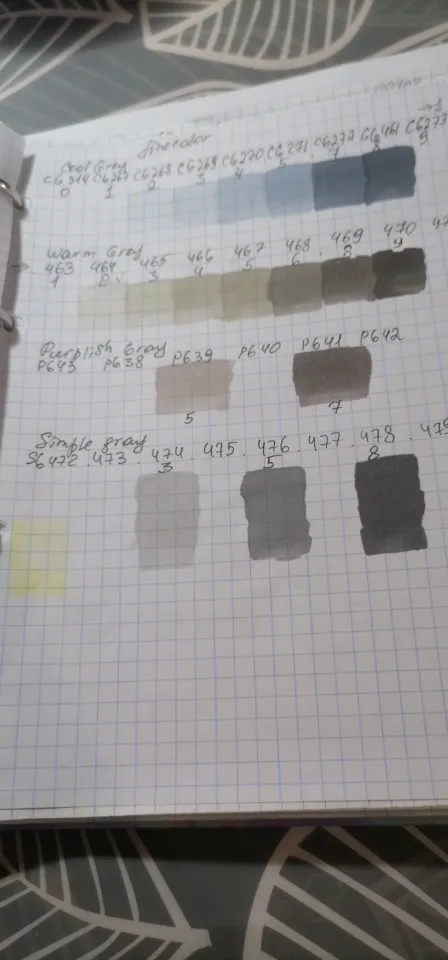 finecolor
Cool Grey
CG314 CG267 CG268 CG269 CG270 CG271 CG272 CG461 CG273
0 1 2 3 4 5 7 8 9
Warm Grey
463 464 465 466 467 468 469 470 47
1 2 3 4 5 6 8 9
Purplish Gray
P643 P638 P639 P640 P641 P642
5 7
Simple gray
SG472 . 473 . 474 . 475 . 476 . 477 . 478 . 479
3 5 8